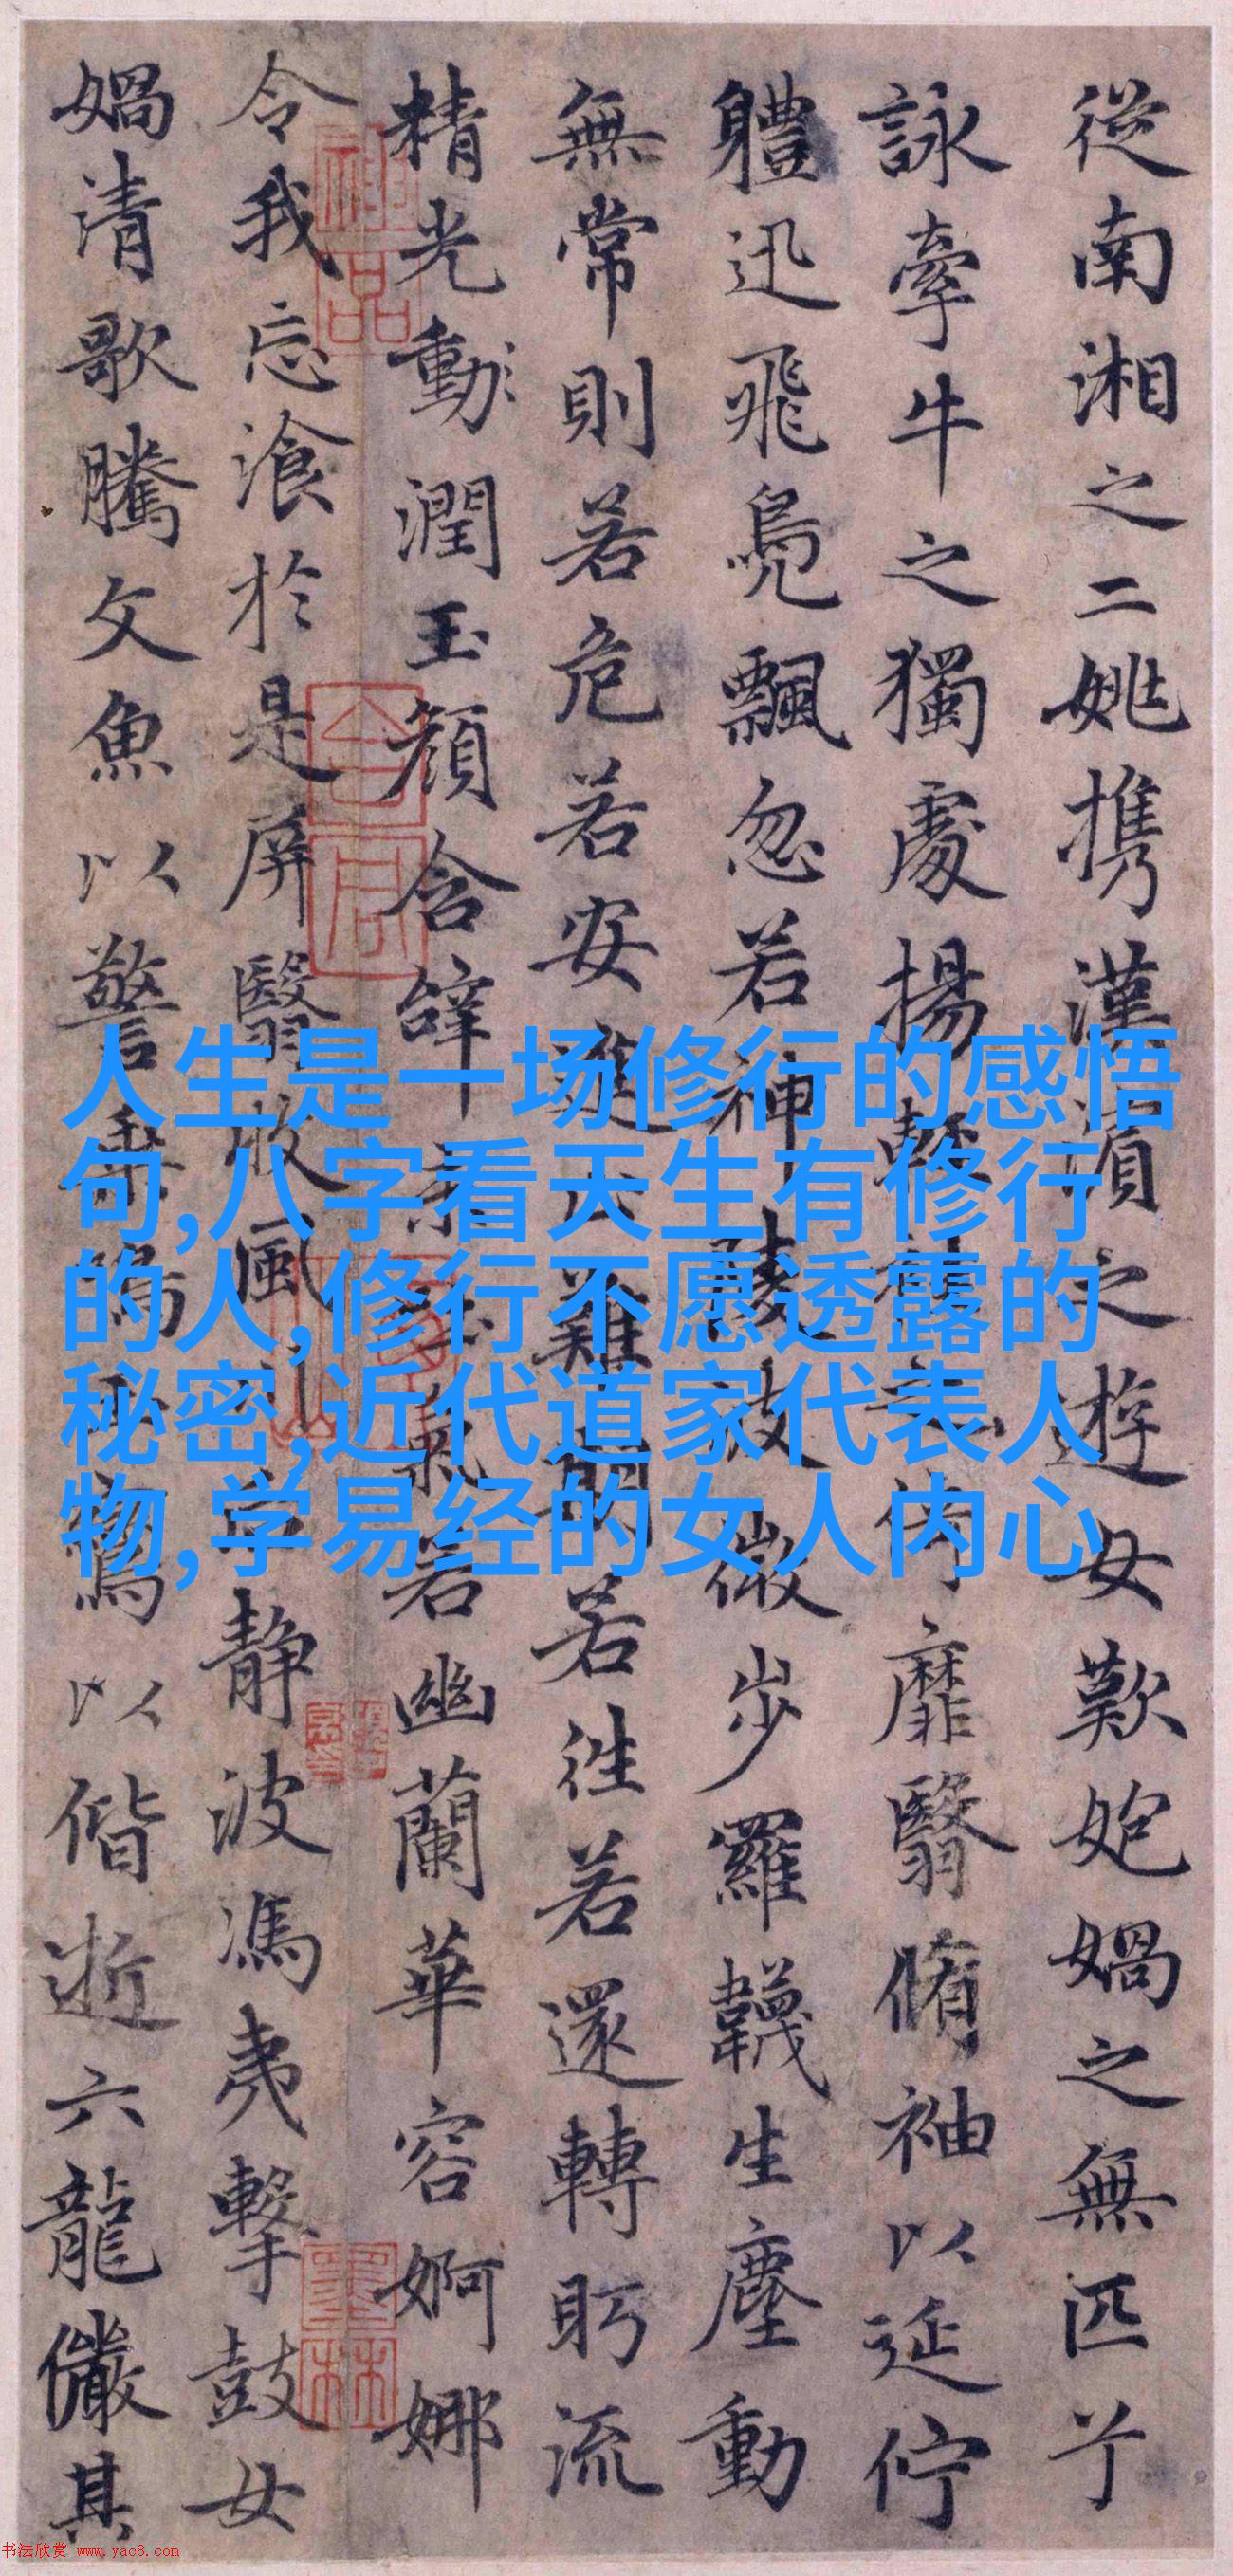 從南湘之二姚携漢濱之遊女歎媧之無匹兮
詠牽牛之獨處揚輕袿之靡翳脩袖以延佇
軆迅飛鳧飄忽若神陵波微步羅韈生塵動
無常則若危若安進止難期若往若還轉眄流
精光動潤玉顏含辭未吐氣若幽蘭華容婀娜
令我忘飡於是屏翳收風川后靜波馮夷擊鼓女
媧清歌騰文魚以警乘鳴玉鸞以偕逝六龍儼其
神品
墨林
人生是一场修行的感悟
句,八字看天生有修行
的人,修行不愿透露的
秘密,近代道家代表人
物,学易经的女人内心
书法欣赏 www.yac8.com